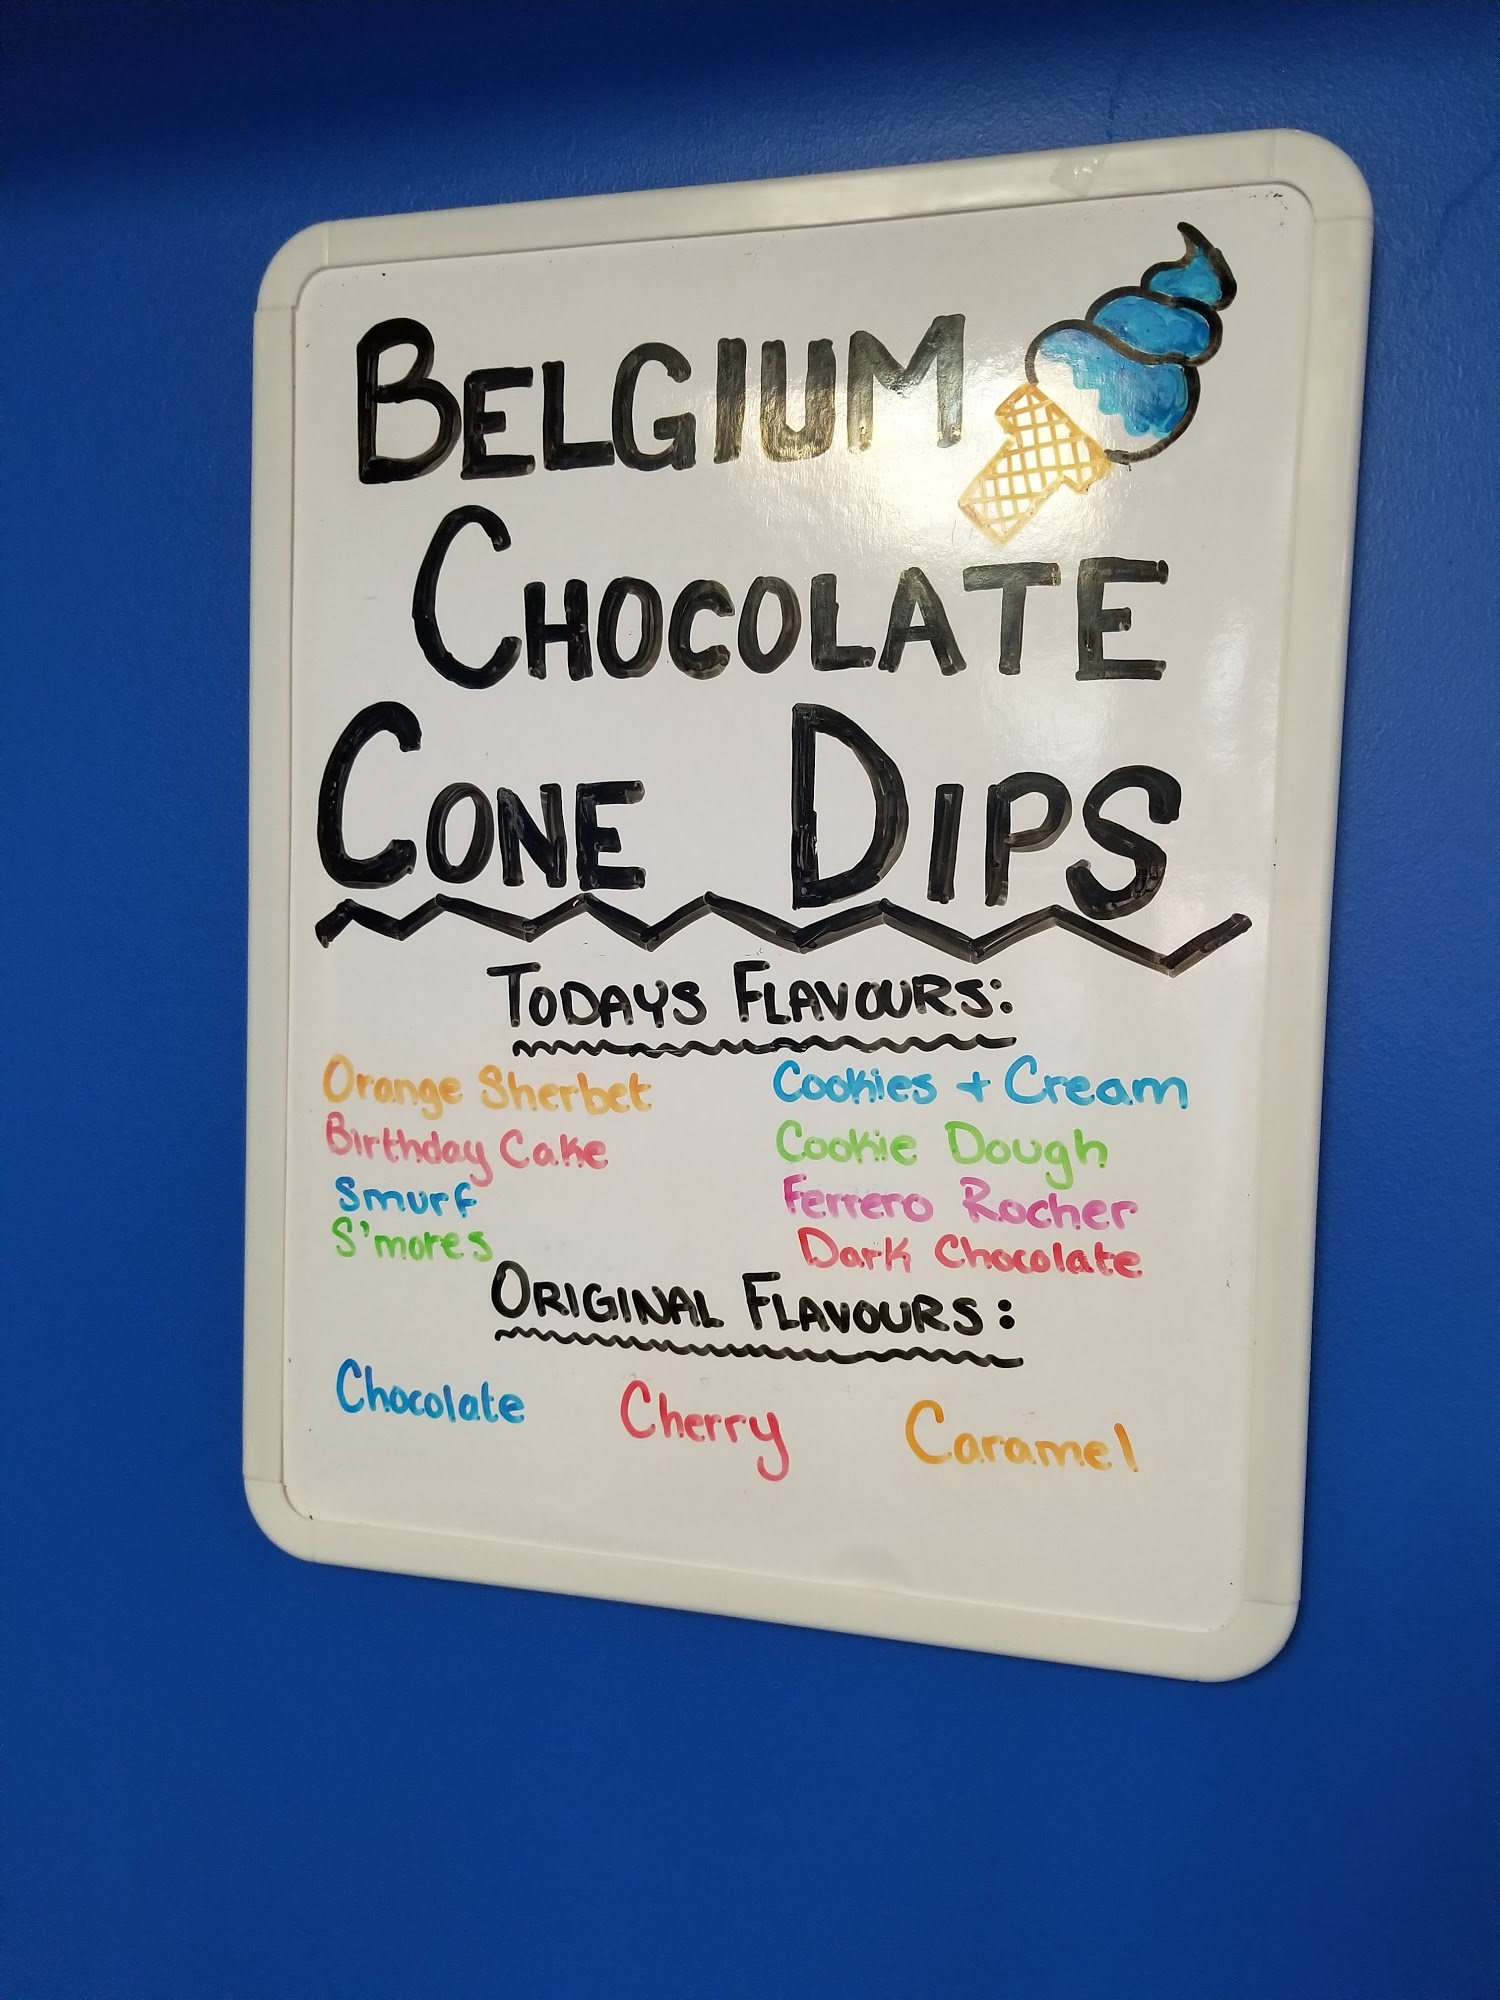 BELGIUM
CHOCOLATE
CONE DIPS
TODAYS FLAVOURS:
Orange Sherbet
Birthday Cake
Smurf
S'mores
Cookies + Cream
Cookie Dough
Ferrero Rocher
Dark Chocolate
ORIGINAL FLAVOURS:
Chocolate Cherry Caramel